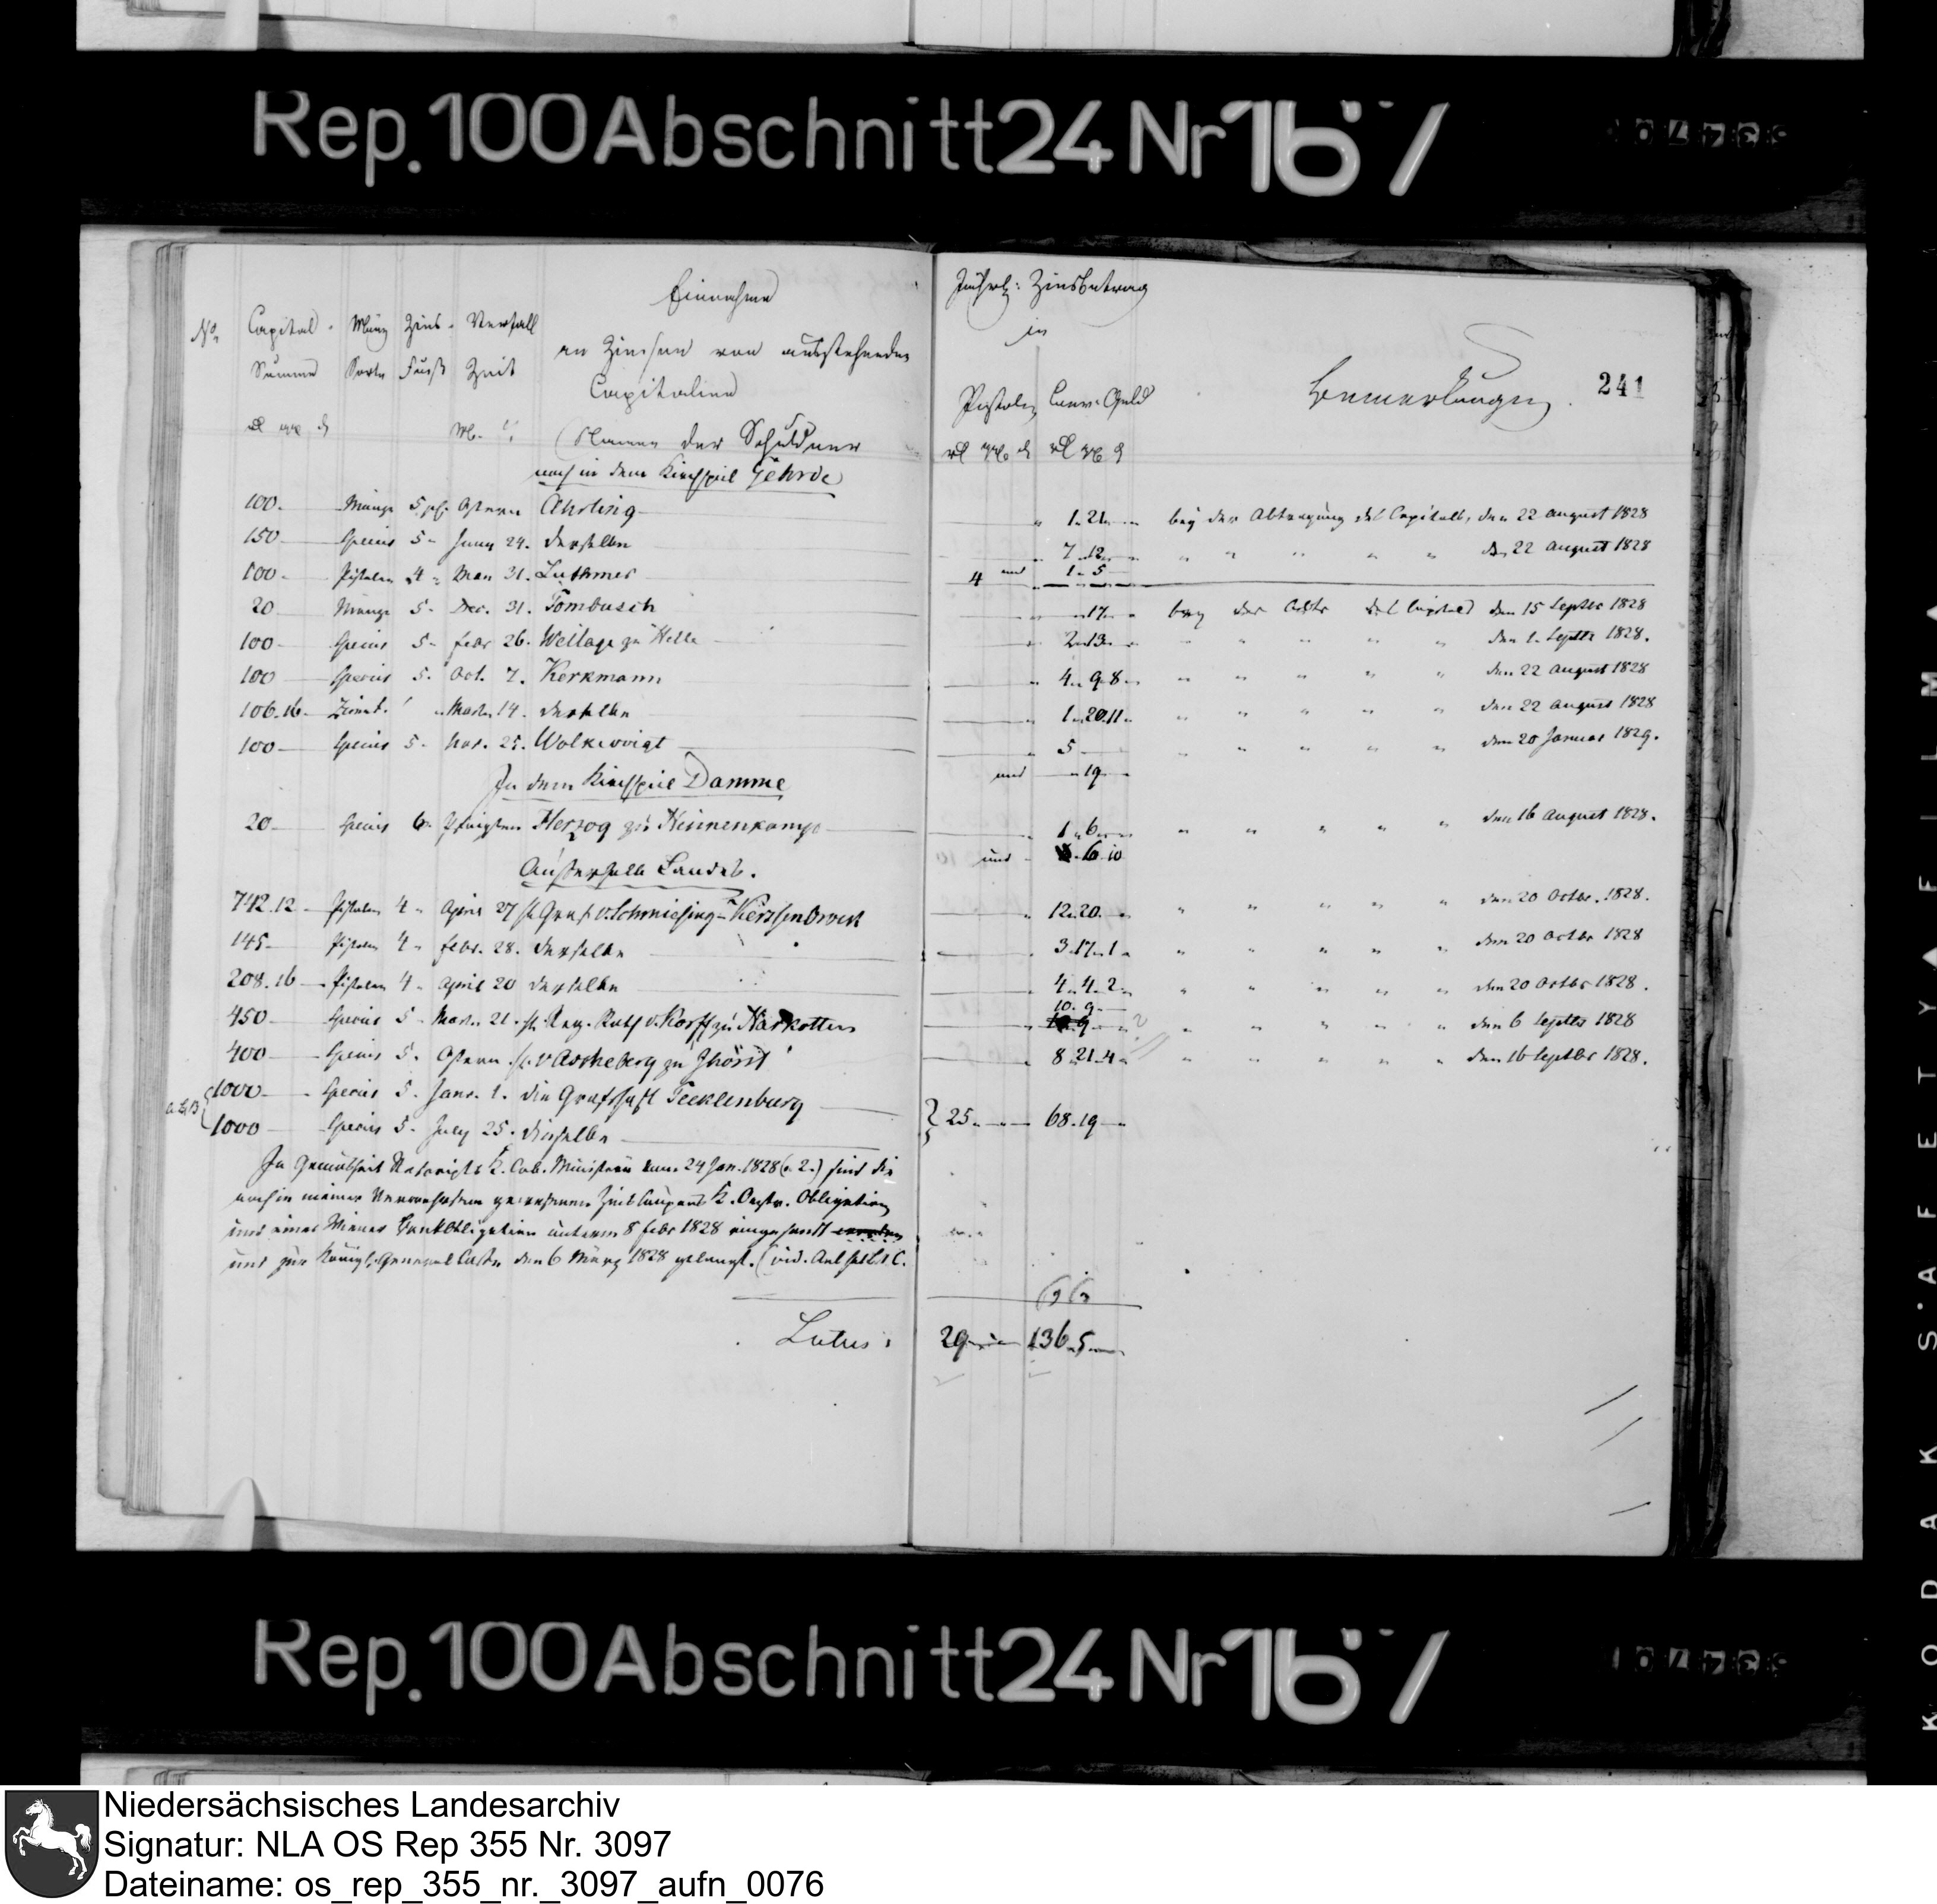 Rep. 100 Abschnitt 24 Nr 167
53470
241
Einnahme
an Zinsen von ausstehenden
Capitalien
(Namen der Schuldner
noch in dem Kirchspiel Gehrde
No. Capital Summe Münz Sorte Zins Fuß Verfall Zeit
Jährl: Zinsbetrag
in
Pistolen Conv: Geld
Bemerkungen.
100. Münze 5 pC. Ostern Ahrling 1. 21. bey der Abtragung des Capitals, den 22 August 1828
150 Species 5 Juny 24. derselbe 7. 12. " " " " " den 22 August 1828
100. Pistolen 4 " May 31. Luthmer 4 und 1. 5
20 Münze 5. Dec. 31. Tombusch 17. bey der Abtr des Capitals den 15 Septbr 1828
100 Species 5 Febr 26. Wellage zu Helle 2. 13. " " " " " den 1. Septbr 1828.
100 Species 5. Oct. 7. Kerkmann 4. 9. 8. " " " " " den 22 August 1828
106. 16. " Martz 14. derselbe 1. 20. 11. " " " " " den 22 August 1828
100 Species 5. Nov. 25. Wolkewigt 5 " " " " " den 20 Januar 1829.
und 19
In dem Kirchspiel Damme
20 Species 6. Pfingsten Herzog zu Hinnenkamp 1. 6. " " " " " den 16 August 1828.
und 6. 10
Ausserhalb Landes.
742. 12 Pistolen 4 " April 27 H. Graf v. Schmiesing-Kerssenbrock 12. 20. " " " " " den 20 Octbr. 1828.
145 Pistolen 4 " Febr. 28. derselbe 3. 17. 1 " " " " " den 20 Octbr 1828
208. 16 Pistolen 4 " April 20 derselbe 4. 4. 2. " " " " " den 20 Octbr 1828.
10. 9.
450 Species 5 Martz 21. H. Reg. Rath v. Korff zu Harkotten " " " " " den 6 Septbr 1828
400 Species 5. Ostern H. v. Ascheberg zu Ihorst 8. 21. 4. " " " " " den 16 Septbr 1828.
1000 Species 5. Janr. 1. die Grafschaft Tecklenburg
25. 68. 19
1000 Species 5. July 25. dieselbe
In Gemäßheit K. Cab. Ministerii vom 24 Jan. 1828 ( . 2.) sind die
noch in meiner Zins Coupons K. Oestr. Obligation
und einer Wiener Bankobligation unterm 8 Febr 1828 eingesandt
und zur Königl. General Casse den 6 März 1828 gelangt. (vid.
66
Latus: 29 136. 5
Rep. 100 Abschnitt 24 Nr 167
53470
KODAK SAFETY FILM
Niedersächsisches Landesarchiv
Signatur: NLA OS Rep 355 Nr. 3097
Dateiname: os_rep_355_nr._3097_aufn_0076